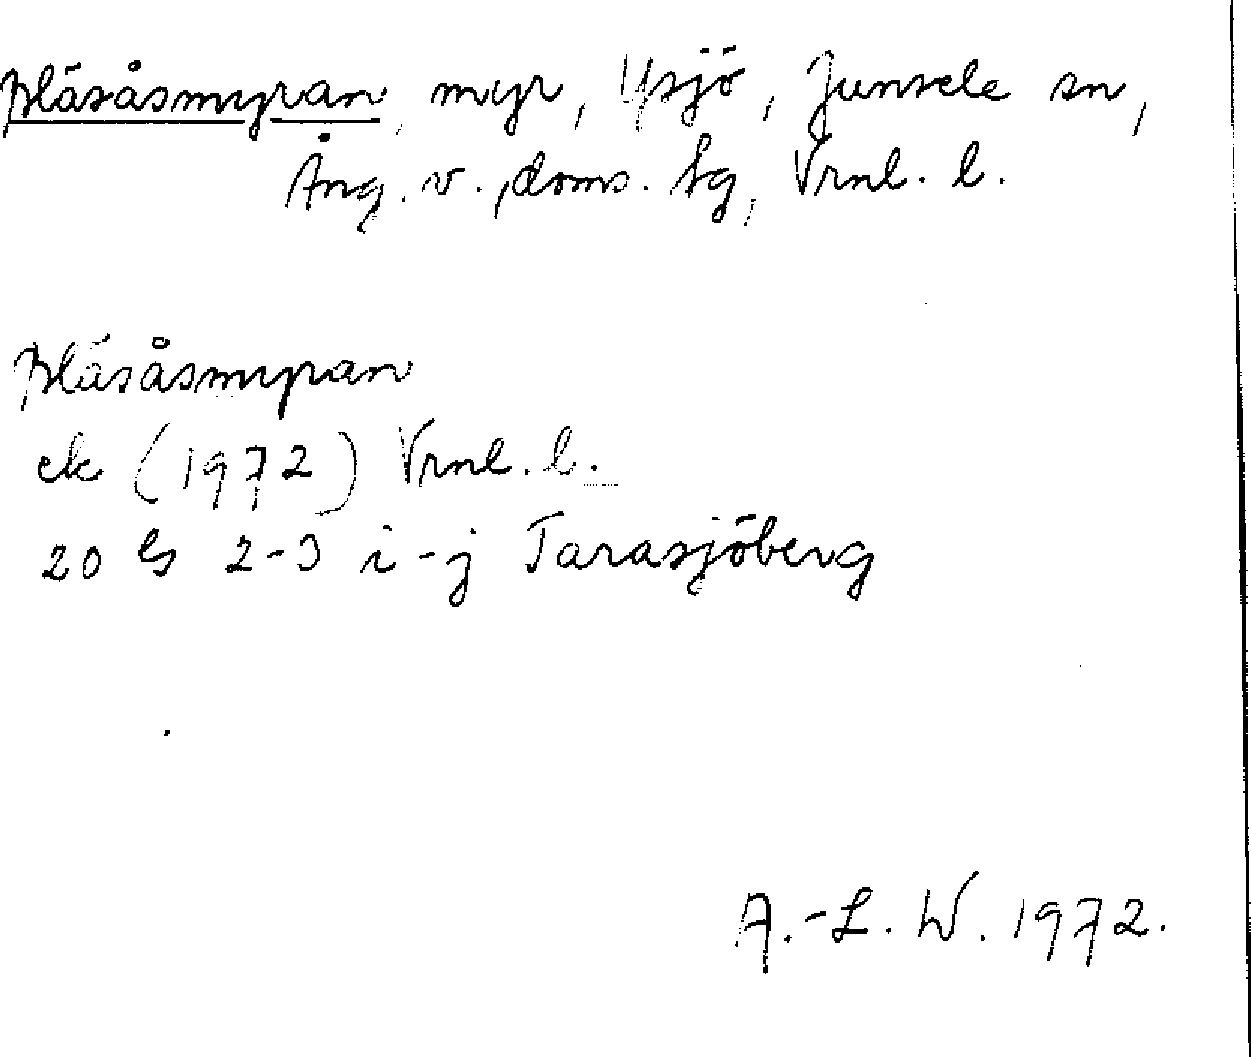 Bläsåsmyran, myr, Ysjö, Junsele sn,
Ång. v., doms. sg, Vrnl. l.
Bläsåsmyran
ek (1972) Vrnl. l.
20 G 2-3 i-j Tarasjöberg
A.-L. W. 1972.